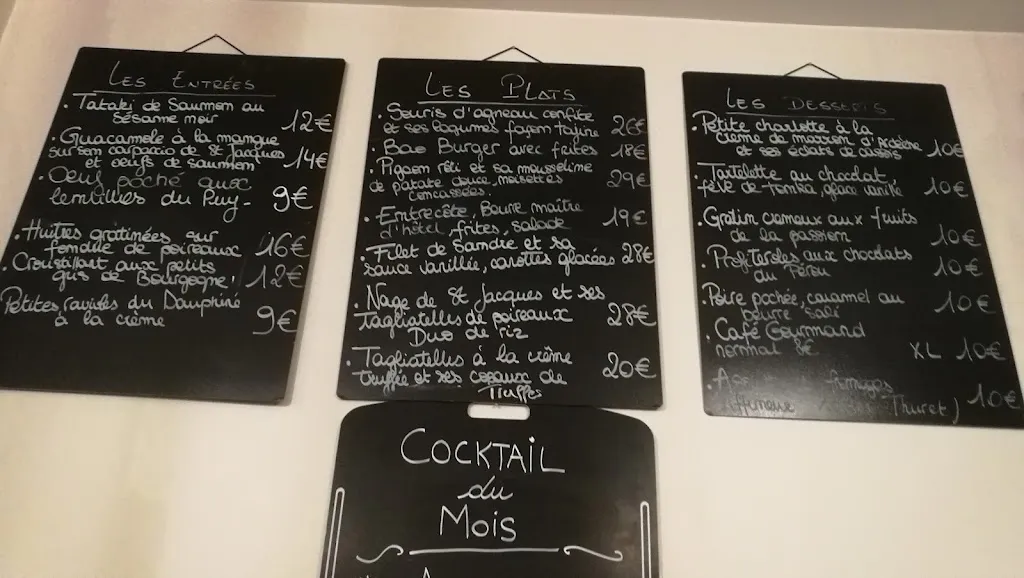 LES ENTRÉES
. Tataki de Saumon au
sésame noir 12€
. Guacamole à la mangue
sur son carpacc de St Jacques
et oeufs de saumon 14€
. Oeuf poché aux
lentilles du Puy - 9€
. Huîtres gratinées sur
fondue de poireaux 16€
. Croustillant aux petits
gris de Bourgogne 12€
Petites ravioles du Dauphiné
à la crème 9€
LES PLATS
. Souris d'agneau confite
et ses légumes façon tajine 26€
. Bao Burger avec frites 18€
. Pigeon rôti et sa mousseline
de patate douce, noisettes
concassées. 29€
. Entrecôte, Beurre maître
d'hôtel, frites, salade 19€
. Filet de Sandre et sa
sauce vanillée, carottes glacées 28€
. Nage de St Jacques et ses
Tagliatelles de poireaux
Duo de riz 28€
. Tagliatelles à la crème
truffée et ses copeaux de
Truffes 20€
LES DESSERTS
. Petite charlotte à la
crème de marron d'Ardèche
et ses éclats de 10€
. Tartelette au chocolat,
fève de tonka, glace vanille 10€
. Gratin crémeux aux fruits
de la passion 10€
. Profiteroles aux chocolats
du Pérou 10€
. Poire pochée, caramel au
beurre salé 10€
. Café Gourmand
normal 8€ XL 10€
Thuret) 10€
COCKTAIL
du
MOIS